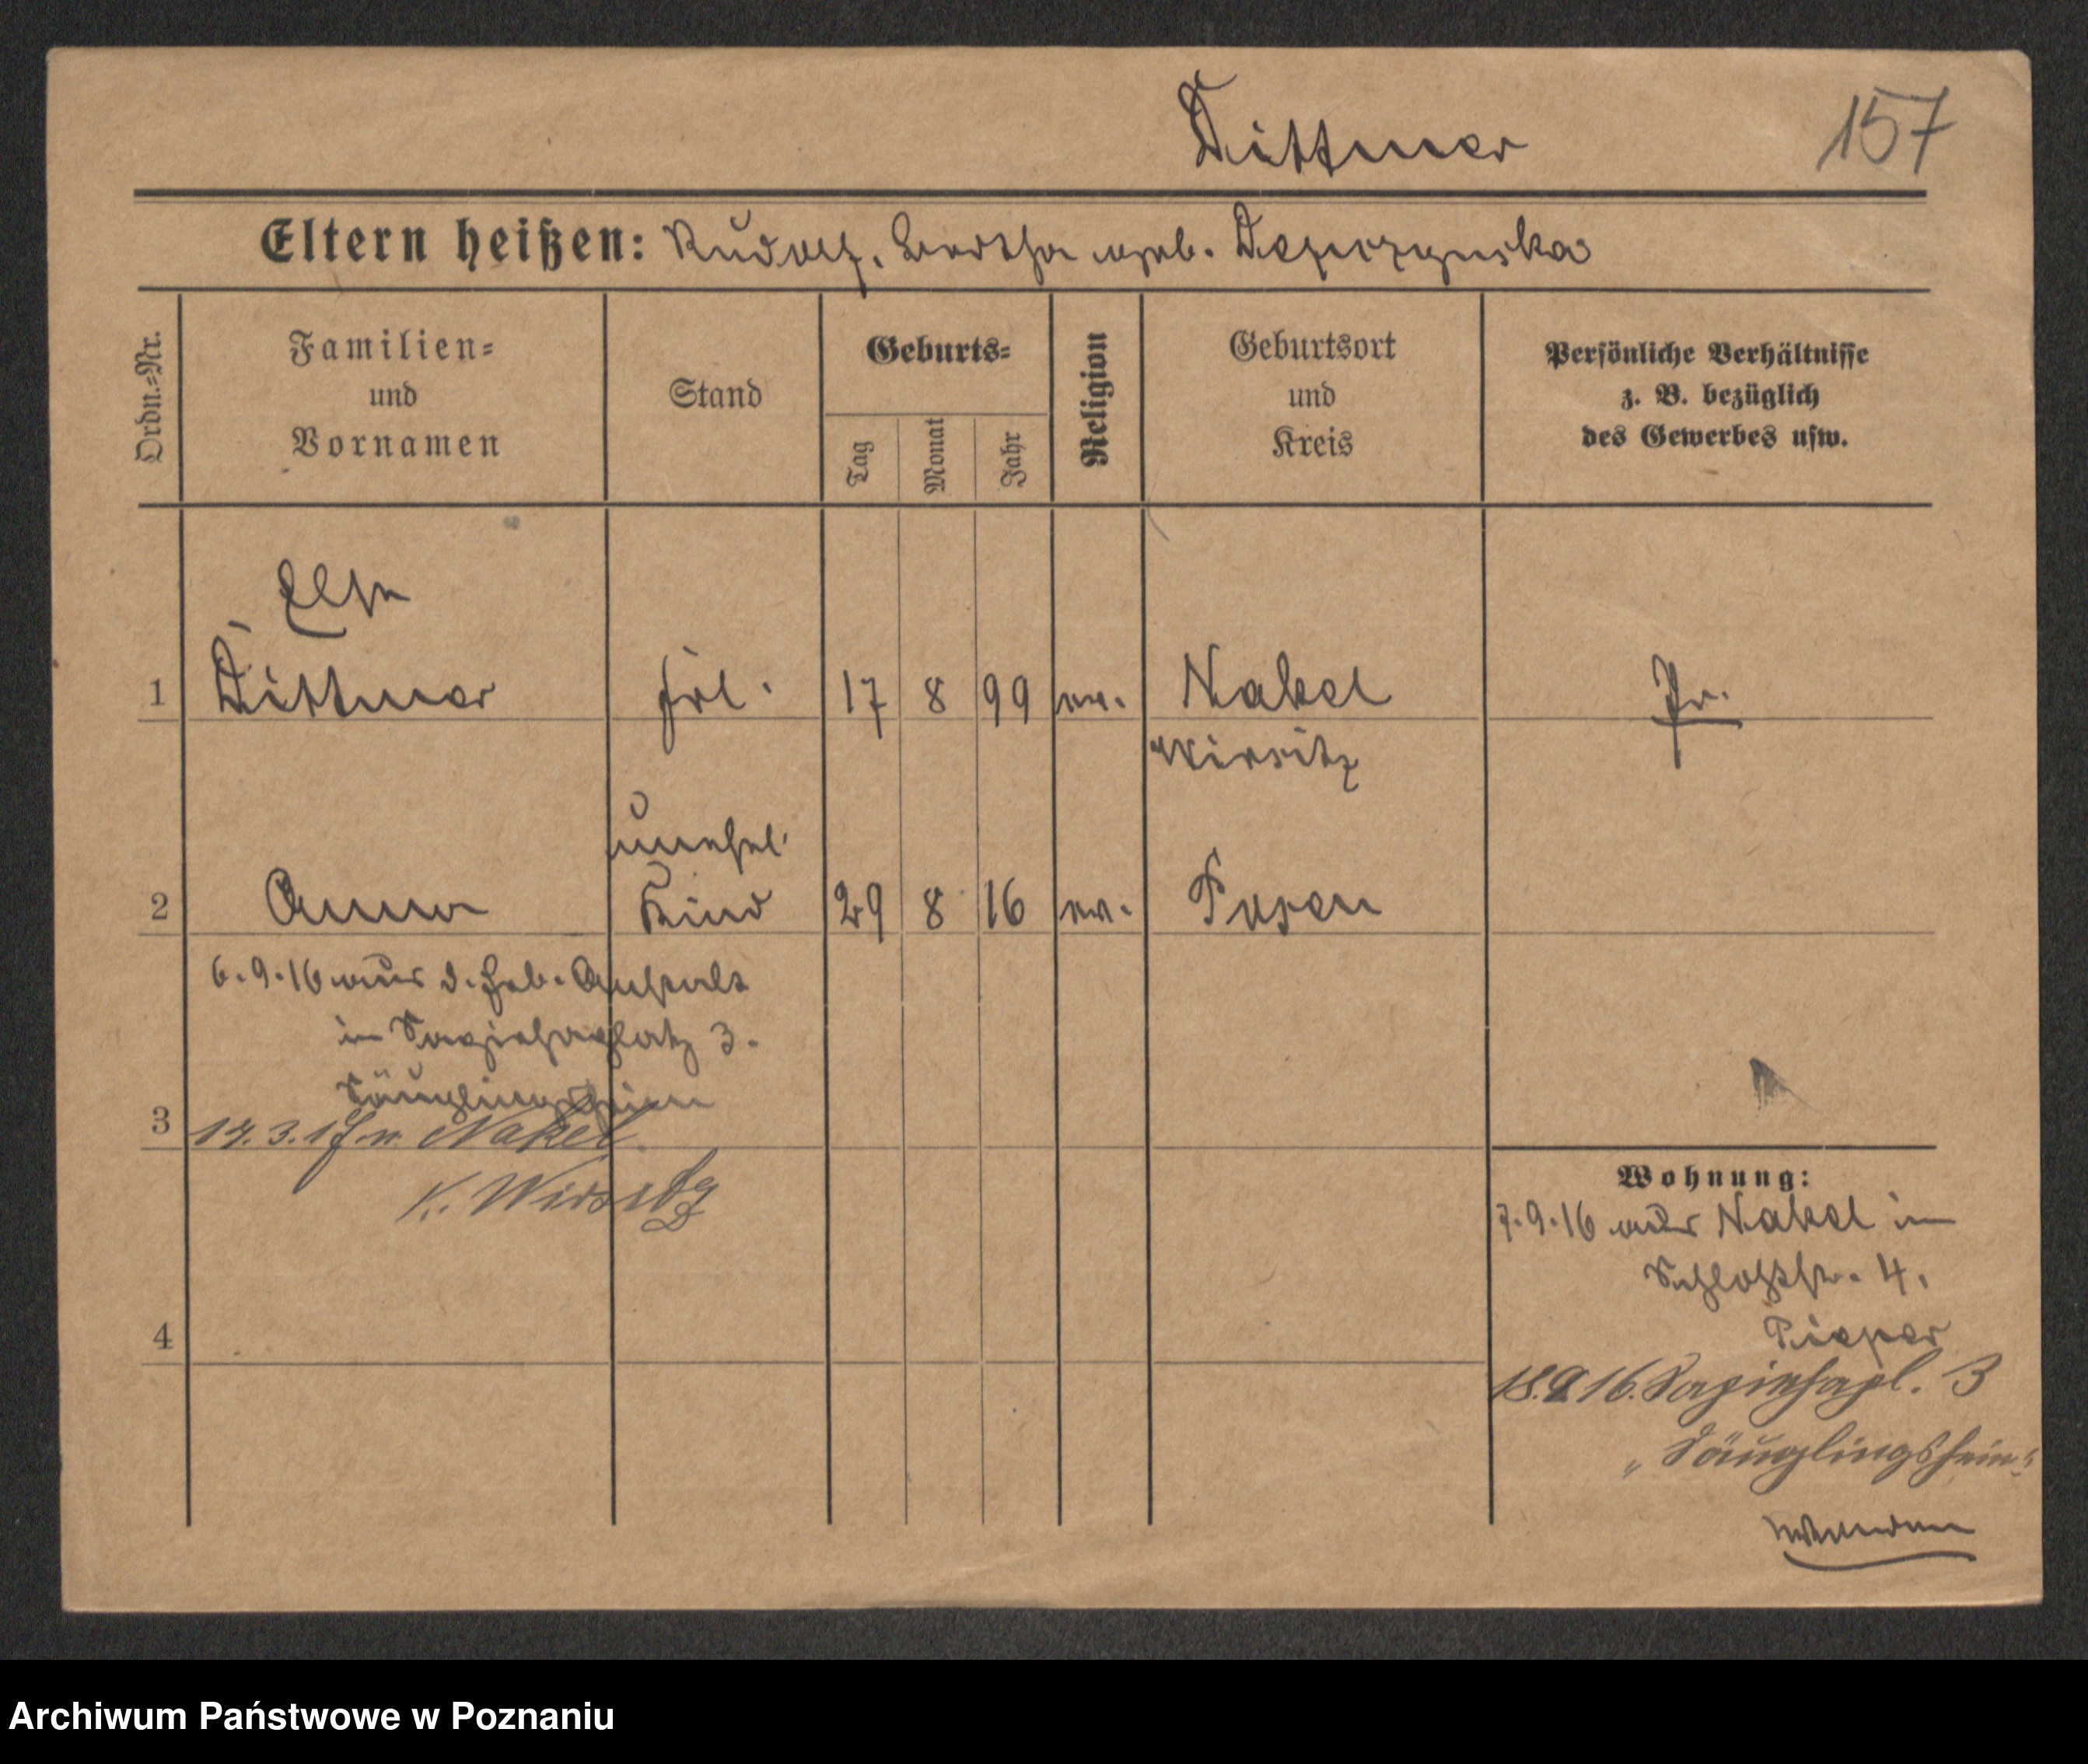 Dittmer
157
Eltern heißen: Rudolf, Bertha geb.
Ordn.=Nr.
Familien=
und
Vornamen
Stand
Geburts=
Tag
Monat
Jahr
Religion
Geburtsort
und
Kreis
Persönliche Verhältnisse
z. B. bezüglich
des Gewerbes usw.
Else
1 Dittmer frl. 17 8 99 ev. Nakel Pr.
Wirsitz
unehel.
2 Anna Kind 29 8 16 ev. Posen
6.9.16 aus d. Heb. Anstalt
in Sapiehaplatz 3.
Säuglingsheim
3 14.3.17 n. Nakel
K. Wirsitz
Wohnung:
7.9.16 aus Nakel in
Schloßstr. 4.
Pieper
4
18.9.16. Sapiehapl. 3
"Säuglingsheim"
Archiwum Państwowe w Poznaniu